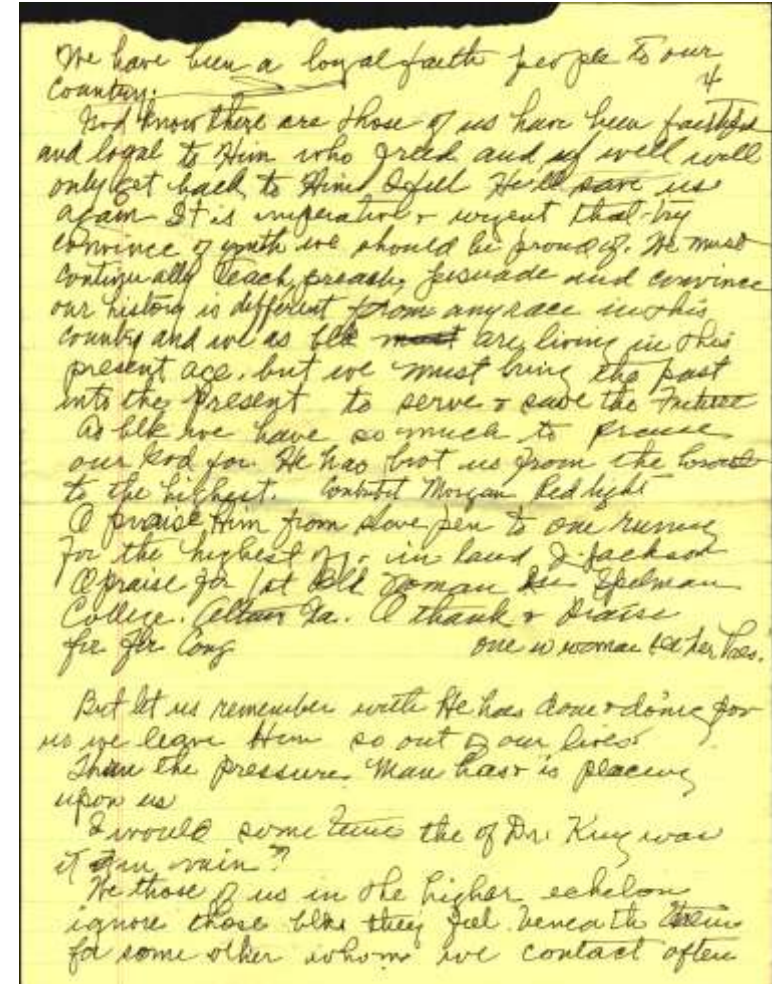 We have been a loyal faith people to our
4
Country.
God know there are those of us have been faithful
and loyal to Him who and if well will
only get back to Him I feel He'll save us
again It is imperative & urgent that try
convince of youth we should be proud of. We must
continually teach, preach, persuade and convince
our history is different from any race in this
country and we as blk must are living in this
present age. but we must bring the past
into the Present to serve & save the Future
As blk we have so much to praise
our God for. He has brot us from the lowest
to the highest. Morgan Red light
O praise Him from slave pen to one running
For the highest of in land J. Jackson
O praise for 1st blk woman Spelman
College. Ga. O thank & Praise
for Cong one w woman
But let us remember with He has done & doing for
us we leave Him so out of our lives
Than the pressure Man has & is placing
upon us
I would some time the of Dr. King was
it in vain?
We those of us in the higher echelon
ignore those blks they feel beneath them
for some other whom we contact often